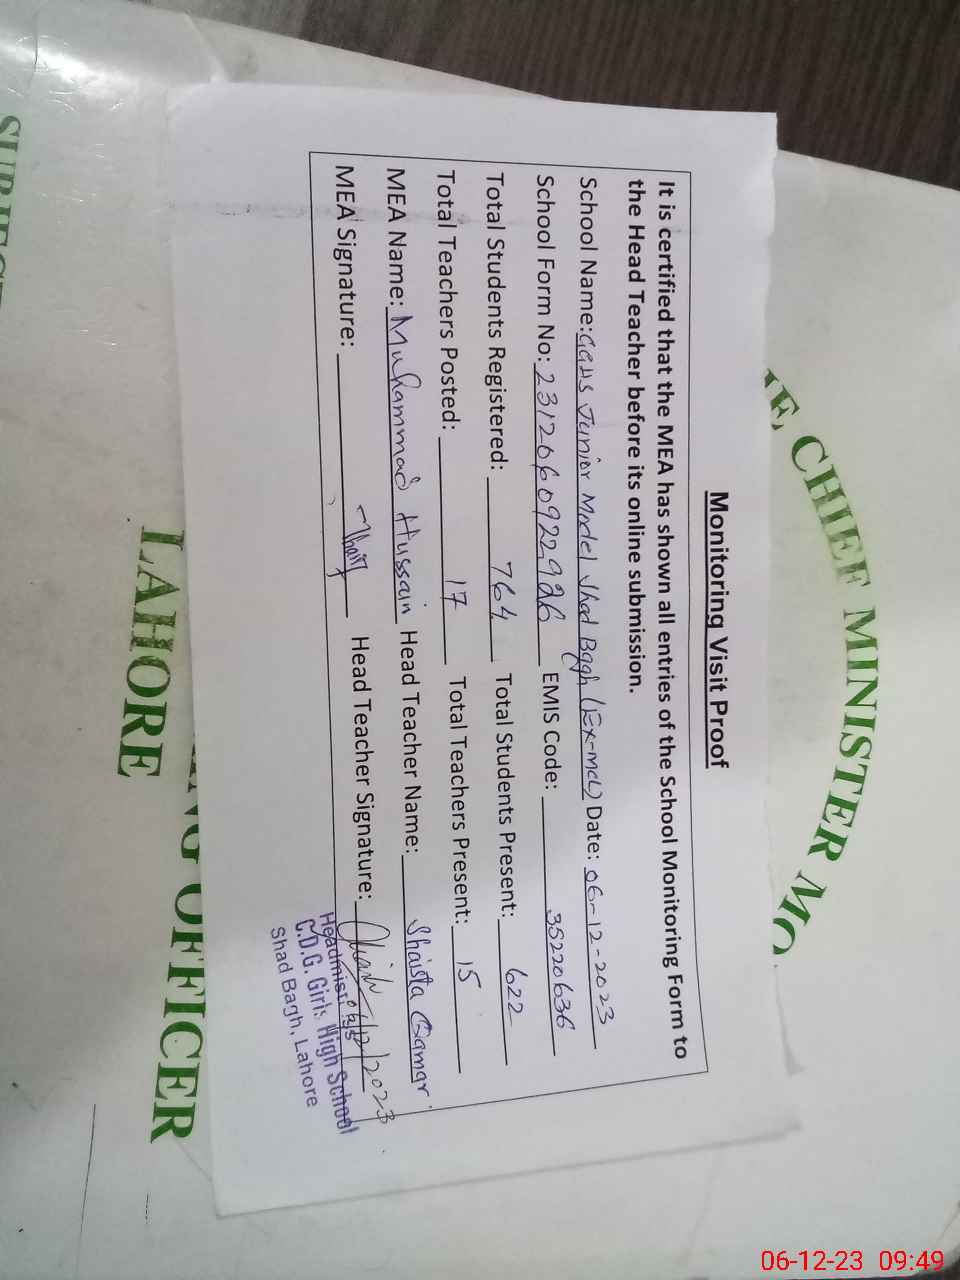 Monitoring Visit Proof
It is certified that the MEA has shown all entries of the School Monitoring Form to
the Head Teacher before its online submission.
School Name: GGHS Junior Model Shad Bagh (Ex-MCL) Date: 06-12-2023
School Form No: EMIS Code: 35220636
Total Students Registered: 764 Total Students Present: 622
Total Teachers Posted: 17 Total Teachers Present: 15
MEA Name: Muhammad Hussain Head Teacher Name: Shaista Qamar
MEA Signature: Head Teacher Signature:
/12/2023
Headmistress
C.D.G. Girls High School
Shad Bagh, Lahore
CHIEF MINISTER
OFFICER
LAHORE
06-12-23 09:49